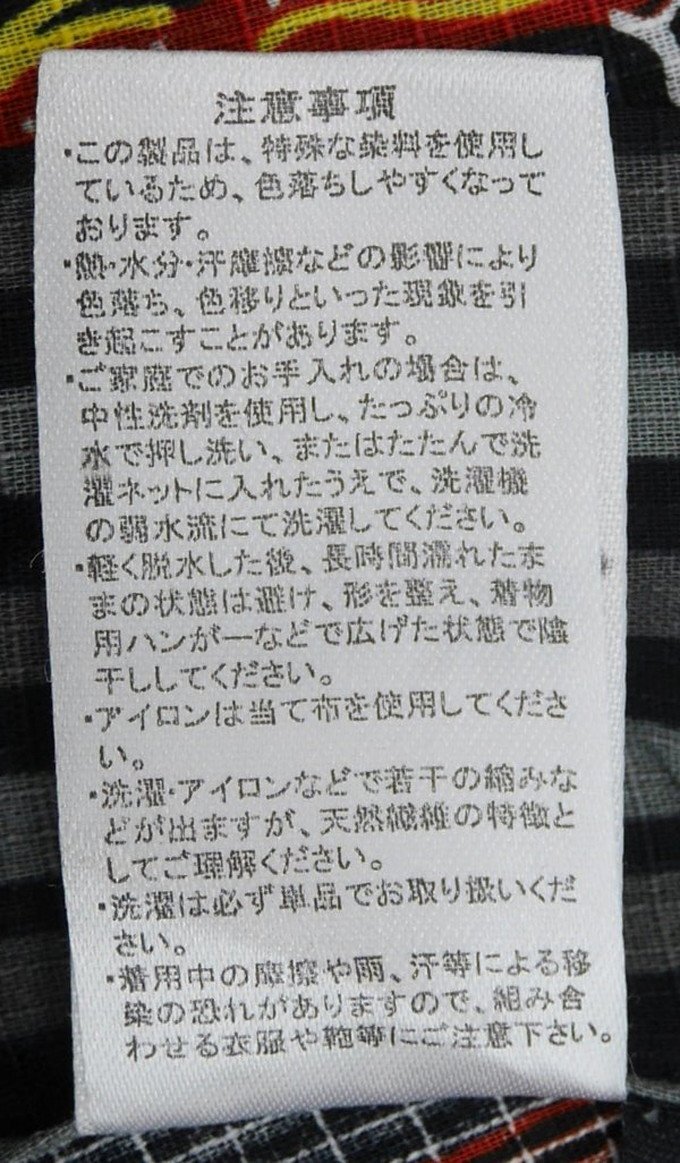 注意事項
・この製品は、特殊な染料を使用し
ているため、色落ちしやすくなって
おります。
・熱・水分・汗摩擦などの影響により
色落ち、色移りといった現象を引
き起こすことがあります。
・ご家庭でのお手入れの場合は、
中性洗剤を使用し、たっぷりの冷
水で押し洗い、またはたたんで洗
濯ネットに入れたうえで、洗濯機
の弱水流にて洗濯してください。
・軽く脱水した後、長時間濡れたま
まの状態は避け、形を整え、着物
用ハンガーなどで広げた状態で陰
干ししてください。
・アイロンは当て布を使用してくださ
い。
・洗濯・アイロンなどで若干の縮みな
どが出ますが、天然繊維の特徴と
してご理解ください。
・洗濯は必ず単品でお取り扱いくだ
さい。
・着用中の摩擦や雨、汗等による移
染の恐れがありますので、組み合
わせる衣服や鞄等にご注意下さい。